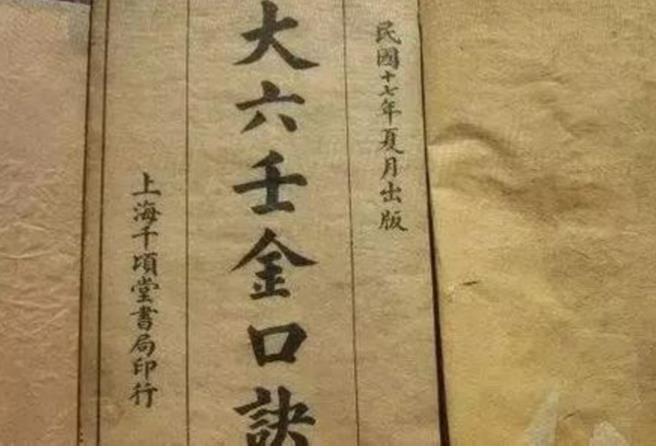 民國十七年夏月出版
大六壬金口訣
上海千頃堂書局印行